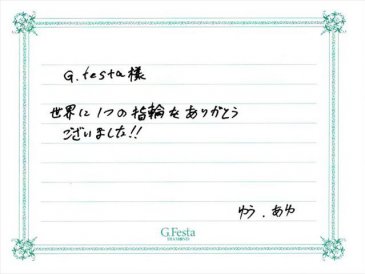 G.festa様
世界に1つの指輪をありがとう
ございました!!
ゆう.あゆ
G.Festa